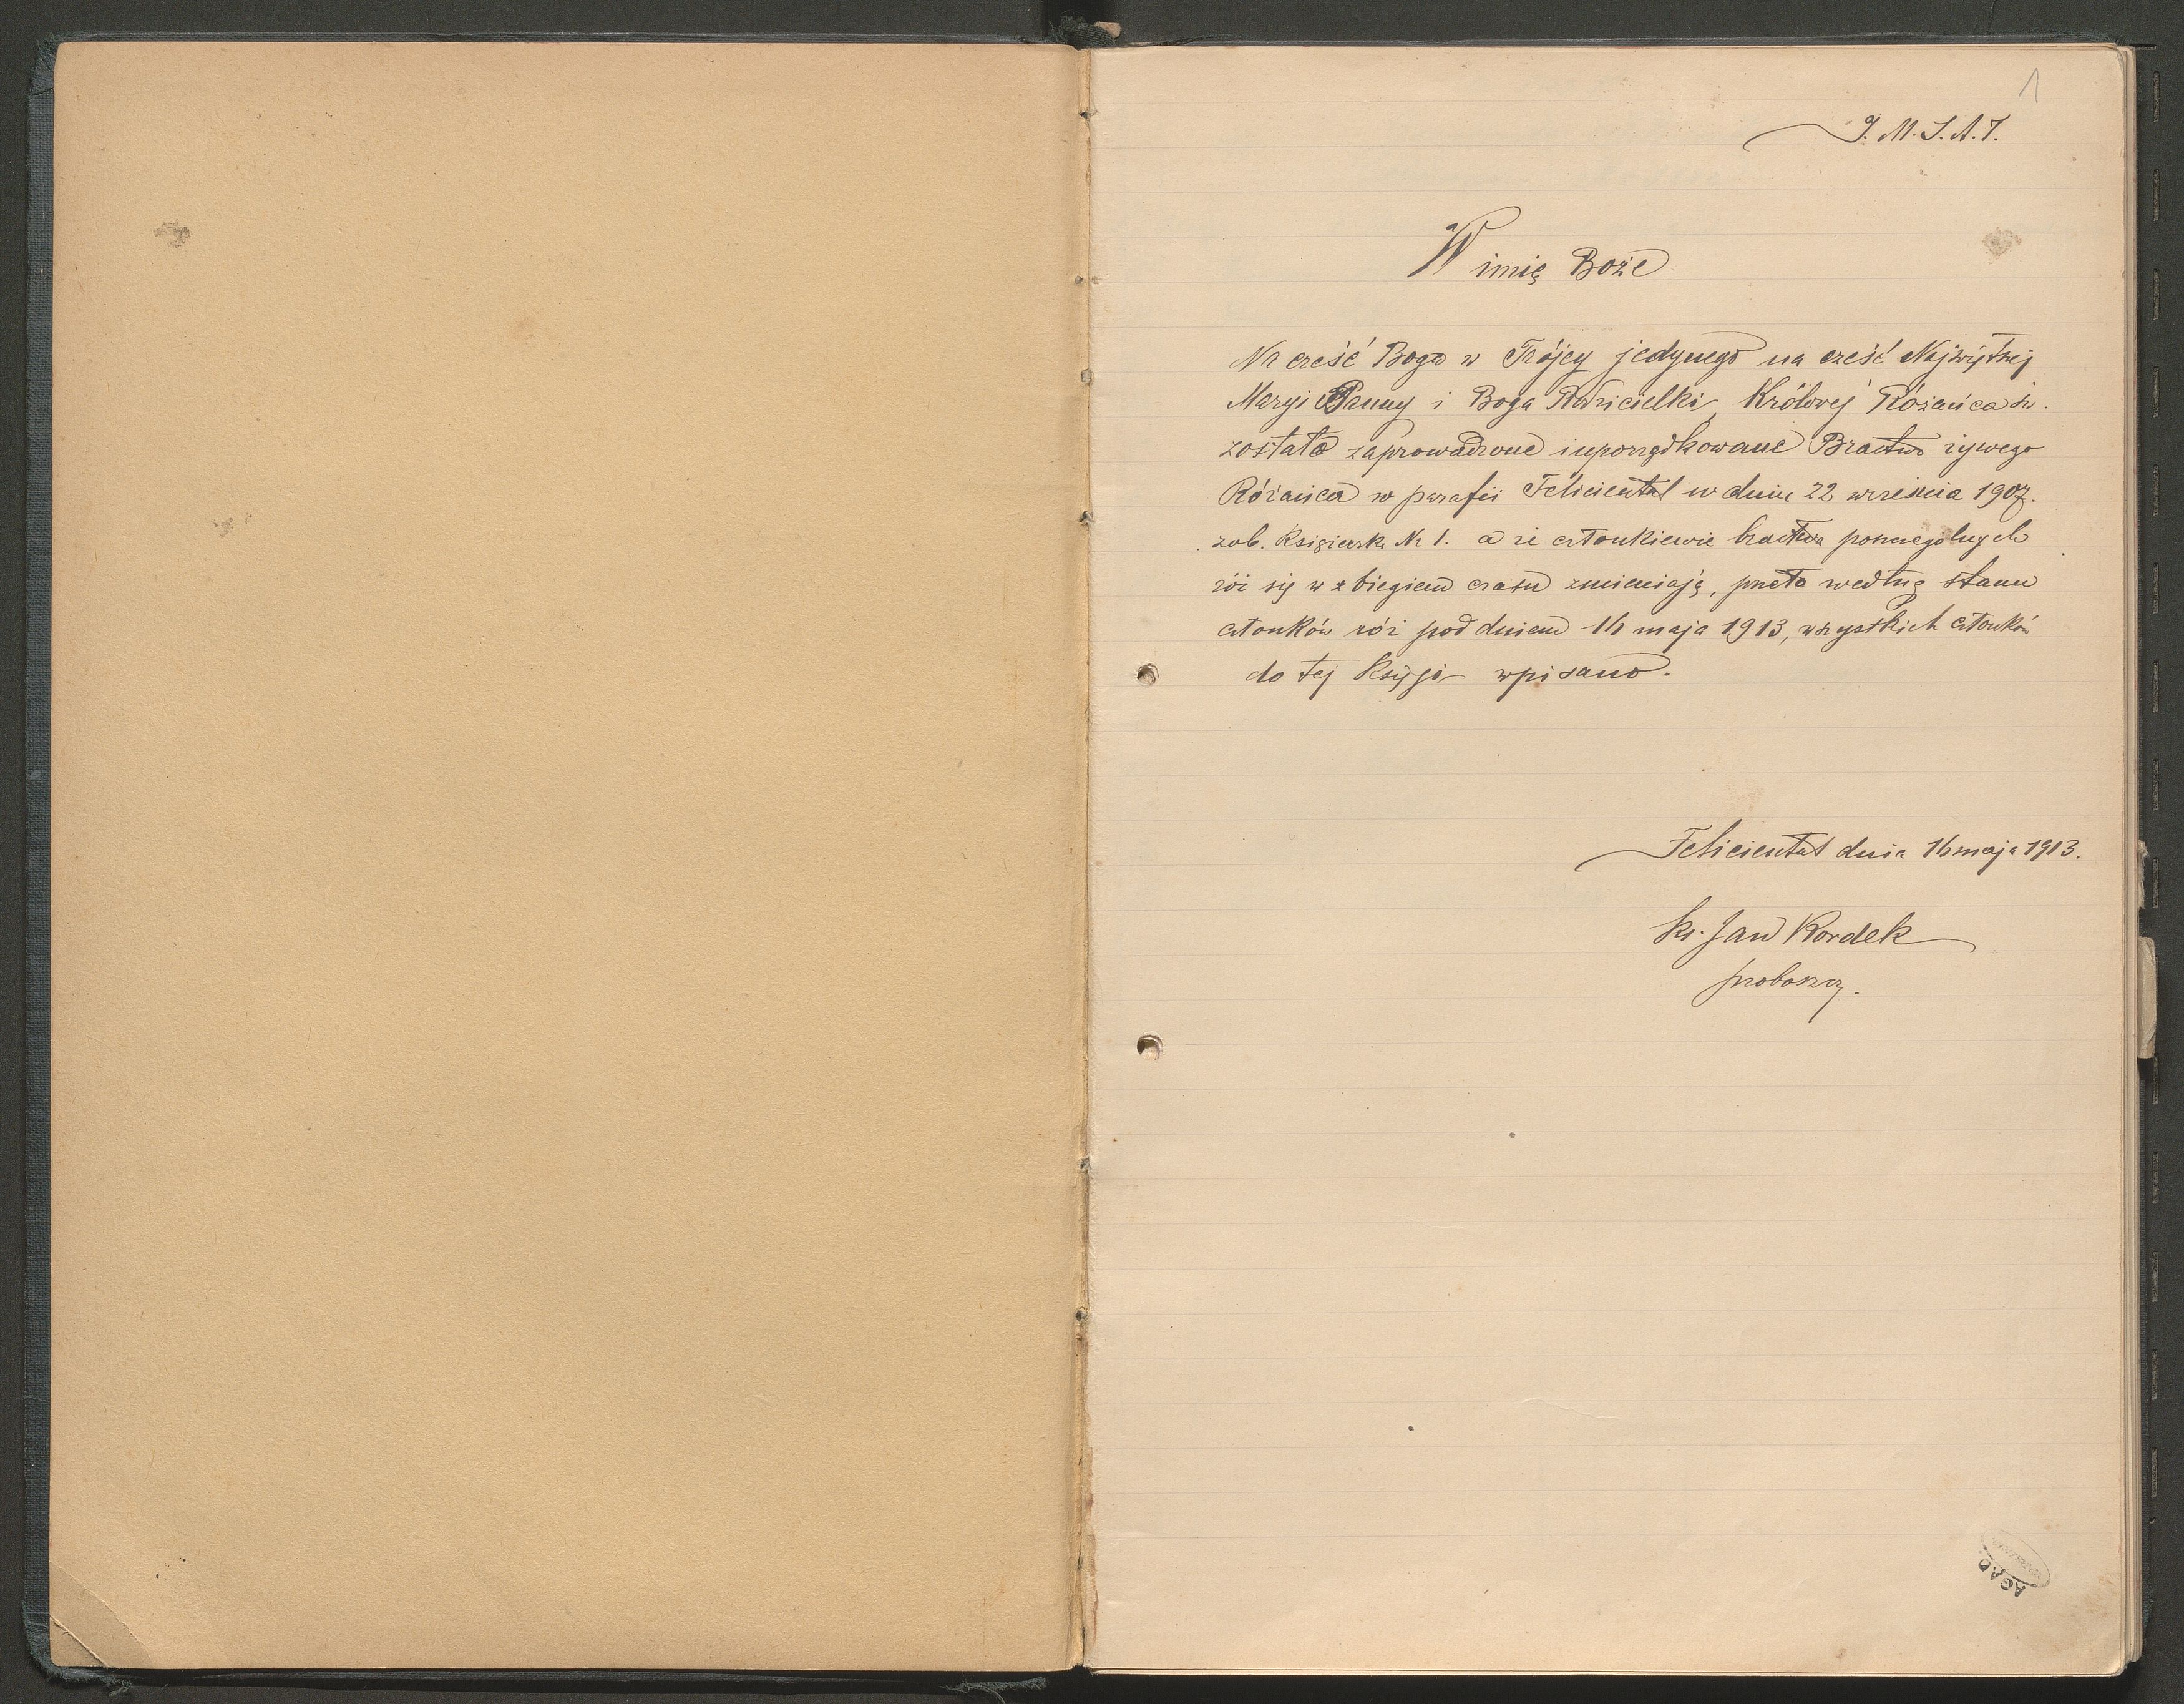 1
J. M. J. A. T.
W imię Boże
Na cześć Boga w Trójcy jedynego na cześć Najświętszej
Maryi Panny i Boga Rodzicielki, Królowej Różańca św.
została zaprowadzone i uporządkowane Bractwo żywego
Różańca w parafii Felicienthal w dniu 22 września 1907.
zob. Książeczkę Nr 1. a że członkiewie bractwa poszczególnych
róż się w z biegiem czasu zmieniają, przeto według stanu
członków róż pod dniem 16 maja 1913, wszystkich członków
do tej księgi wpisano.
Felicienthal dnia 16 maja 1913.
ks. Jan Kordek
proboszcz.
AGAD